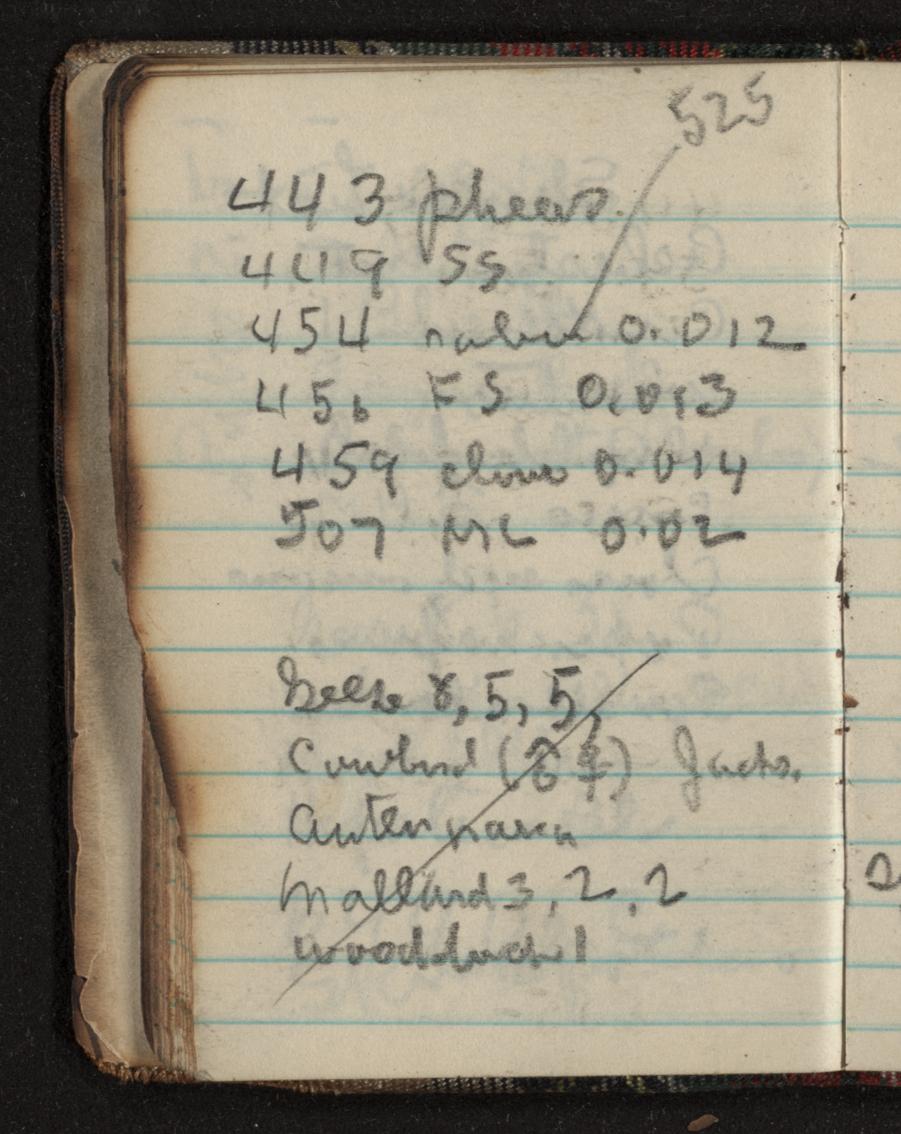 525
443 pheas.
449 SS
454 robin 0.012
456 FS 0.013
459 dove 0.014
507 ML 0.02
Geese 8, 5, 5,
Cowbird (♂♀) Jacks.
Antennaria
Mallard 3, 2, 2
woodduck 1